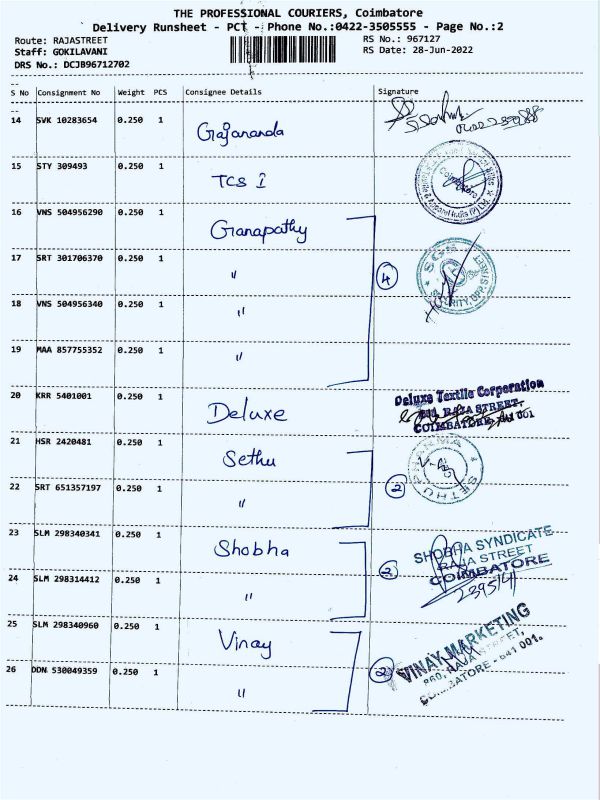 THE PROFESSIONAL COURIERS, Coimbatore
Delivery Runsheet - PCT - Phone No.:0422-3505555 - Page No.:2
Route: RAJASTREET
RS No.: 967127
Staff: GOKILAVANI
RS Date: 28-Jun-2022
DRS No.: DCJB96712702
S No Consignment No Weight PCS Consignee Details Signature
14 SVK 10283654 0.250 1 Gajananda
15 STY 309493 0.250 1 TCS I
16 VNS 504956290 0.250 1 Ganapathy
17 SRT 301706370 0.250 1 " 4
18 VNS 504956340 0.250 1 "
19 MAA 857755352 0.250 1 "
20 KRR 5401001 0.250 1 Deluxe
Deluxe Textile Corporation
RAJA STREET,
COIMBATORE
21 HSR 2420481 0.250 1 Sethu
SETHU
22 SRT 651357197 0.250 1 " 2
23 SLM 298340341 0.250 1 Shobha
SHOBHA SYNDICATE
RAJA STREET
COIMBATORE
24 SLM 298314412 0.250 1 " 2
2395141
25 SLM 298340960 0.250 1 Vinay
VINAY MARKETING
860, RAJA STREET,
COIMBATORE - 641 001.
26 DDN 530049359 0.250 1 " 2